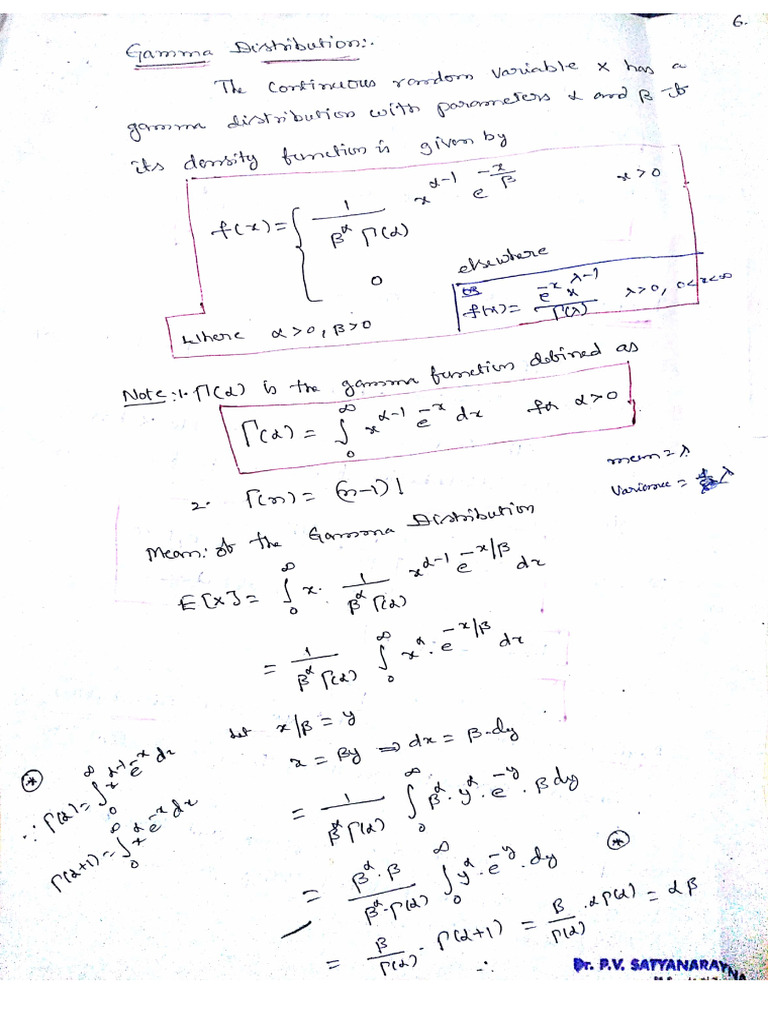 6.
Gamma Distribution:.
The continuous random variable x has a
gamma distribution with parameters α and β it
its density function is given by
f(x) = { 1/(β^α Γ(α)) x^(α-1) e^(-x/β)   x > 0
0   elsewhere
where α > 0, β > 0
OR
f(x) = e^(-x) x^(λ-1) / Γ(λ)   λ > 0, 0 < x < ∞
Note: 1. Γ(α) is the gamma function defined as
Γ(α) = ∫_0^∞ x^(α-1) e^(-x) dx for α > 0
2. Γ(n) = (n-1)!
mean = λ
Variance = λ
Mean: of the Gamma Distribution
E[X] = ∫_0^∞ x. 1/(β^α Γ(α)) x^(α-1) e^(-x/β) dx
= 1/(β^α Γ(α)) ∫_0^∞ x^α . e^(-x/β) dx
Let x/β = y
x = βy ⇒ dx = β.dy
= 1/(β^α Γ(α)) ∫_0^∞ β^α . y^α . e^(-y) . β dy
= β^α . β/(β^α . Γ(α)) ∫_0^∞ y^α . e^(-y) . dy   (*)
= β/Γ(α) . Γ(α+1) = β/Γ(α) . α Γ(α) = αβ
(*)
∵ Γ(α) = ∫_0^∞ x^(α-1) e^(-x) dx
Γ(α+1) = ∫_0^∞ x^α e^(-x) dx
∴
Dr. P.V. SATYANARAYNA